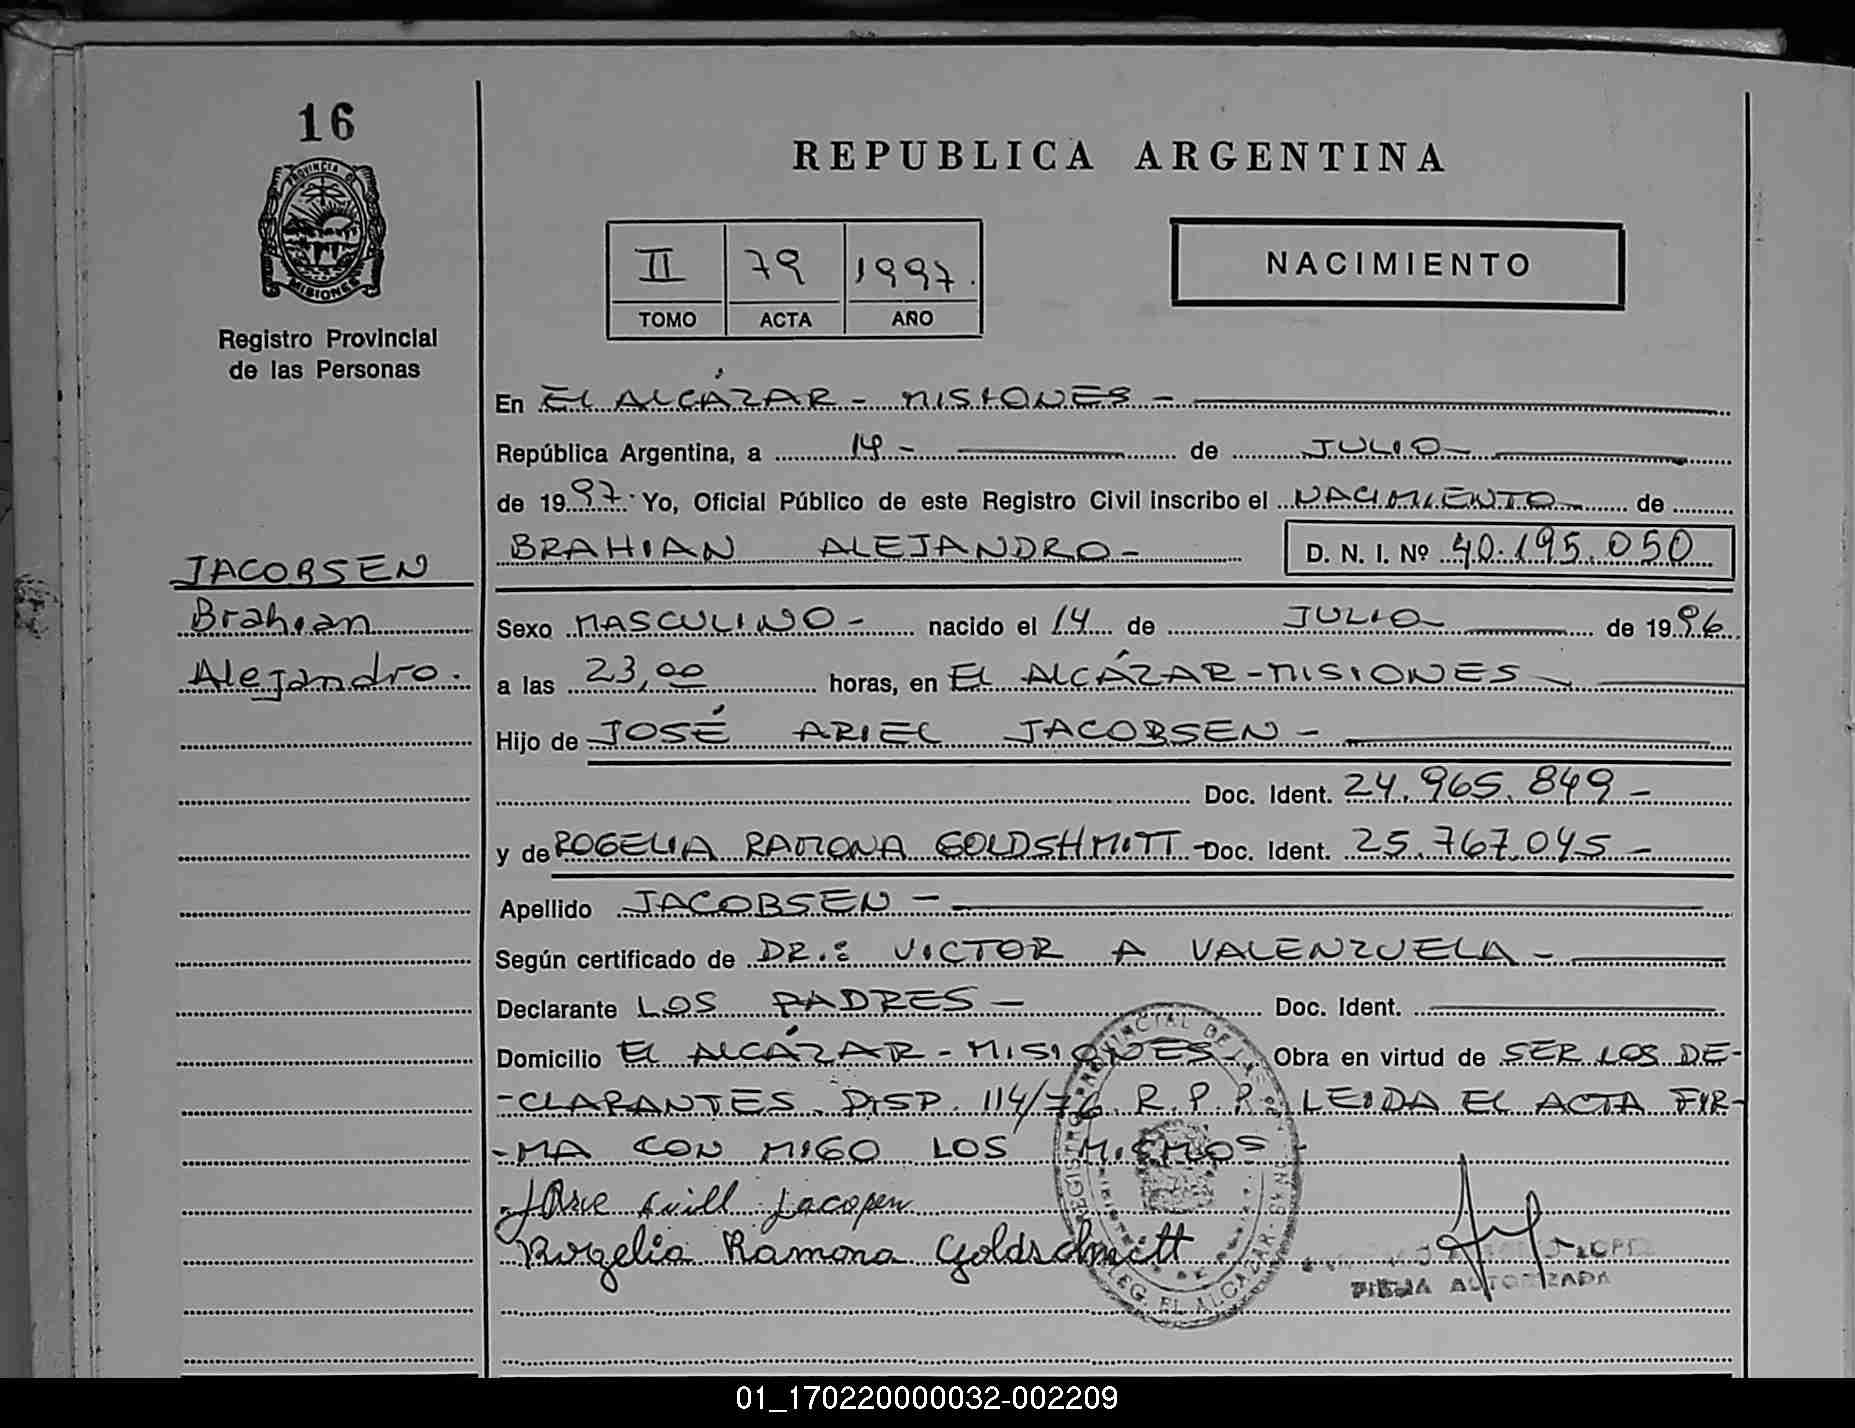 16
PROVINCIA DE
MISIONES
Registro Provincial
de las Personas
JACOBSEN
Brahian
Alejandro.
REPUBLICA ARGENTINA
II 79 1997.
TOMO ACTA AÑO
NACIMIENTO
En EL ALCÁZAR - MISIONES -
República Argentina, a 14 - de JULIO -
de 1997. Yo, Oficial Público de este Registro Civil inscribo el NACIMIENTO de
BRAHIAN ALEJANDRO - D. N. I. Nº 40.195.050
Sexo MASCULINO - nacido el 14 de JULIO de 1996.
a las 23,00 horas, en EL ALCÁZAR - MISIONES -
Hijo de JOSÉ ARIEL JACOBSEN -
Doc. Ident. 24.965.849 -
y de ROGELIA RAMONA GOLDSHMITT - Doc. Ident. 25.767.045 -
Apellido JACOBSEN -
Según certificado de DR.: VICTOR A VALENZUELA -
Declarante LOS PADRES - Doc. Ident.
Domicilio EL ALCÁZAR - MISIONES - Obra en virtud de SER LOS DE-
-CLARANTES. DISP. 114/76 R.P.P. LEIDA EL ACTA FIR-
-MA CON MIGO LOS MISMOS
Rogelia Ramona Goldschmitt
REGISTRO PROVINCIAL DE LAS
EL ALCAZAR
LOPEZ
FIRMA AUTORIZADA
01_170220000032-002209